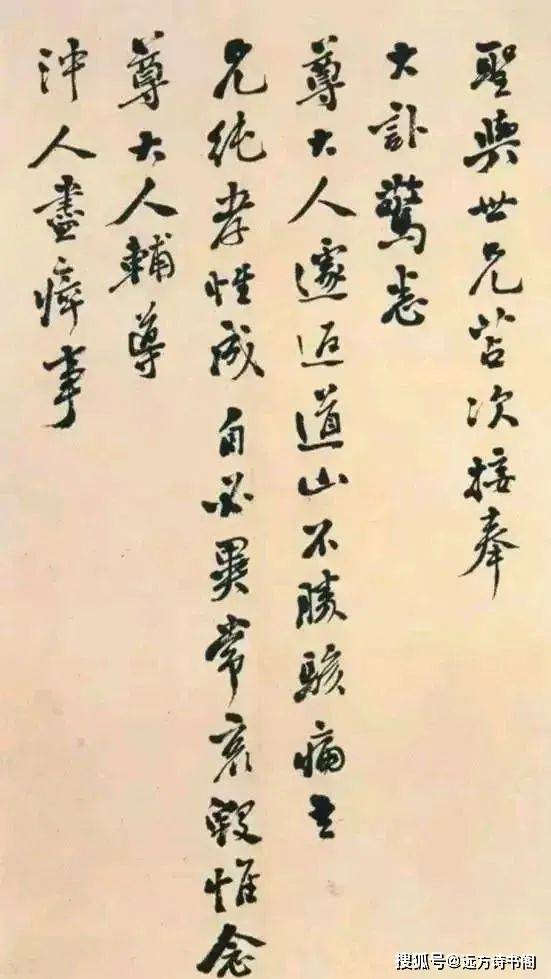 聖與世兄苫次接奉
大訃驚悉
尊大人遽返道山不勝駭痛
兄純孝性成自必異常哀毀惟念
尊大人輔導
沖人盡瘁事
搜狐号@远方诗书阁